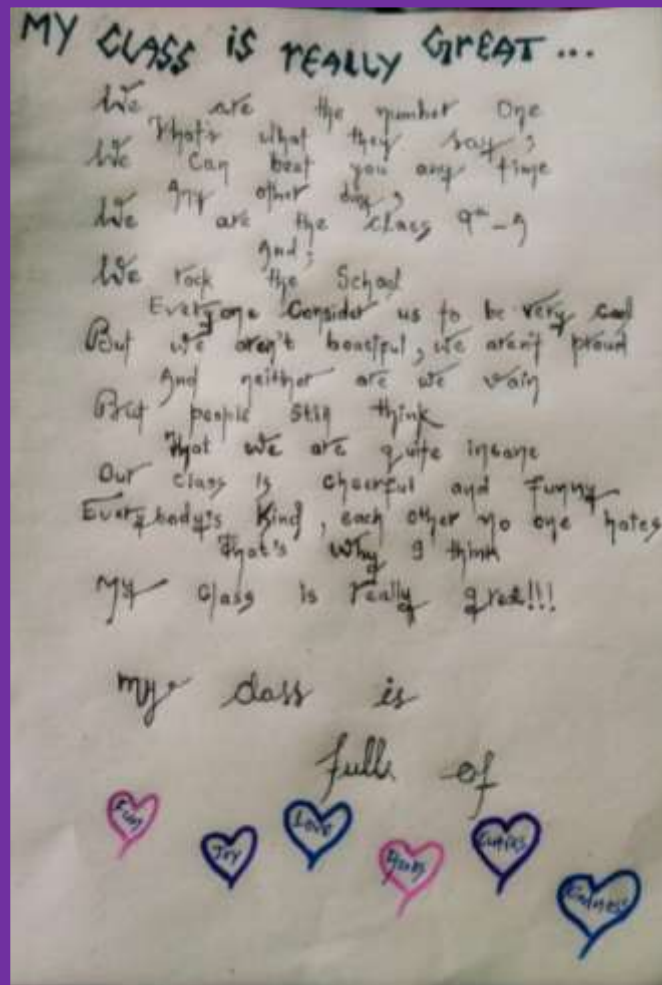 MY CLASS iS rEALLY GrEAT...
We are the number one
That's what they say,
We can beat you any time
Any other day,
We are the class 9th - 
And,
We rock the School
Everyone Consider us to be very cool
But we aren't boastful, we aren't proud
And neither are we vain
But people still think
That we are quite insane
Our class is cheerful and funny
Everybody's kind, each other no one hates
That's why I think
My class is really great!!!
my class is
full of
Fun
Joy
Love
Cuties